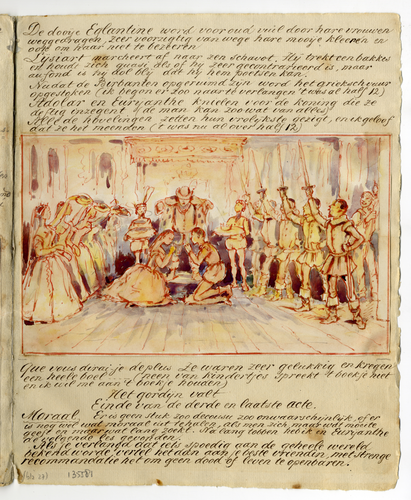 De dooije Eglantine word voor oud vuil door hare vrouwen
weggedragen, zeer voorzigtig van wege hare mooije kleeren en
ook om haar niet te bezeeren.
Lysiart marcheert af naar zen schavot. Hij trekt een bakkes
en houdt zich quasi als of hij zeer gecontrarieerd is, maar
au fond is hij dol blij dat hij hem poetsen kan.
Nadat de Brabanten opgeruimd zijn word het grieksch vuur
opgestoken (ik begon er zoo naar te verlangen 't was al half 12)
Adolar en Euryanthe knielen voor de koning die ze
deftig inzegent (de man kan zoo wat van alles)
Al de hovelingen zetten hun vrolijkste gezigt, en ik geloof
dat ze het meenden ('t was nu al over half 12)
Que vous dirai-je de plus ze waren zeer gelukkig en kregen
een heele boel (neen van kindertjes spreekt 't boekje niet
en ik wil me aan 't boekje houden)
Het gordijn valt
Einde van de derde en laatste acte.
Moraal. Er is geen stuk zoo decousu zoo onwaarschijnlijk, of er
is nog wel wat moraal uit te halen, als men zich maar wat moeite
geeft en maar wat lang zoekt. Na lang zoeken heb ik in Euryanthe
de volgende les gevonden.
Als je verlangd dat iets spoedig aan de geheele wereld
bekend worde, vertel het dan aan je beste vriendin, met strenge
recommandatie het om geen dood of leven te openbaren.
135787